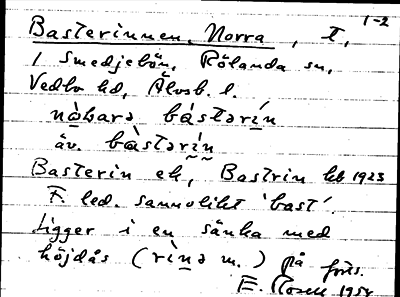 1-2
Basterinnen, Norra, t,
i Smedjebön, Rölanda sn,
Vedbo hd, Älvsb. l.
nò̱barə bástərí̱n
äv. bàstərḭ̀n̰
Basterin ek, Bastrin hbk 1923
F. led. sannolikt 'bast'.
Ligger i en sänka med
höjdås (rì̱nə m.) på
E. Rosell 1954